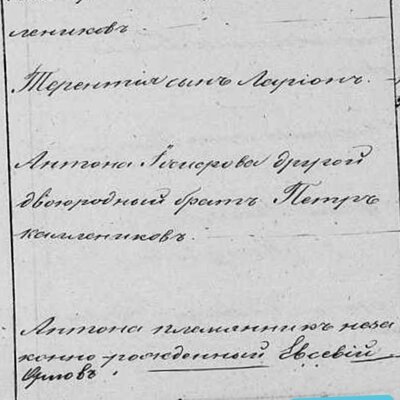 лениковъ
Терентія сынъ Ларіонъ.
Антона другой
двоюродный братъ Петръ
каллениковъ.
Антона племянникъ неза
конно-рожденный Евсевій
Орловъ.